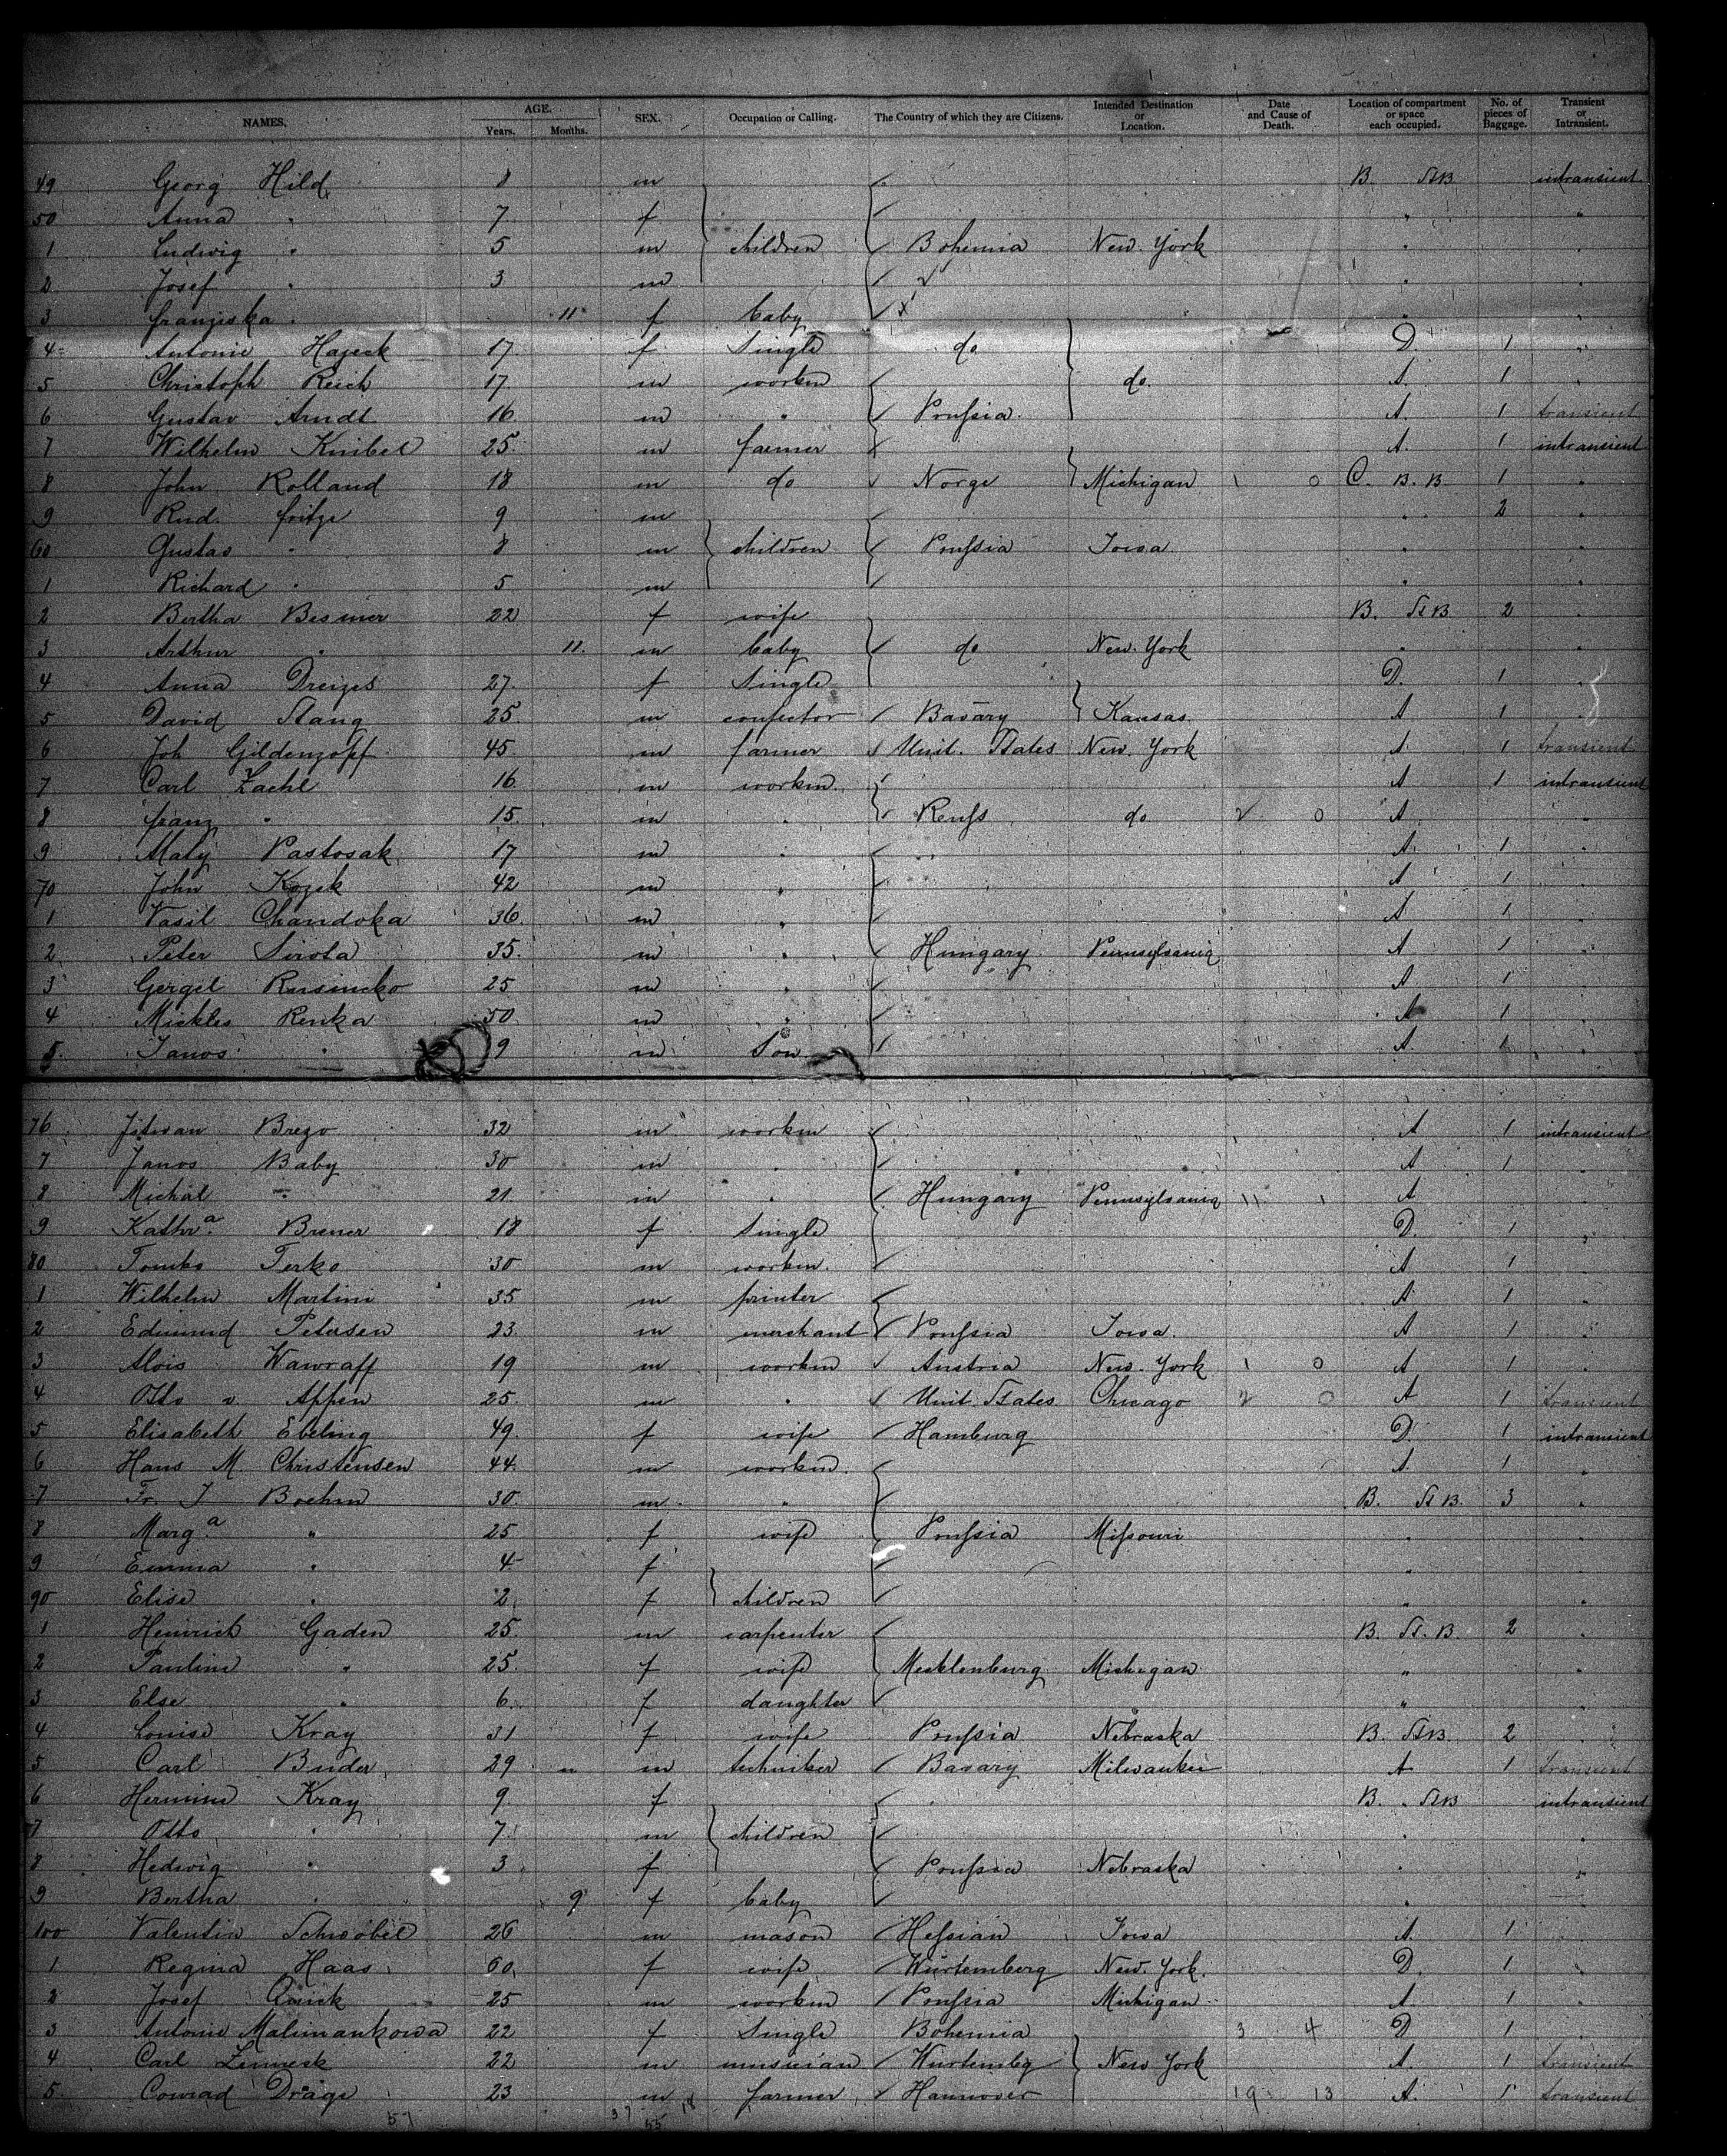 NAMES. AGE. SEX. Occupation or Calling. The Country of which they are Citizens. Intended Destination or Location. Date and Cause of Death. Location of compartment or space each occupied. No. of pieces of Baggage. Transient or Intransient.
Years. Months.
49 Georg Hild 8 m B. StB intransient
50 Anna " 7 f " "
1 Ludwig " 5 m children Bohemia New York " "
2 Josef " 3 m " "
3 Franziska " 11 f baby " "
4 Antonie Hajeck 17 f Single do D 1 "
5 Christoph Reich 17 m workm do. A. 1 "
6 Gustav Arndt 16 m " Prussia. A. 1 transient
7 Wilhelm Knibel 25 m farmer A. 1 intransient
8 John Rolland 18 m do Norge Michigan 1 0 C. B. B. 1 "
9 Rud. Fritze 9 m " 2
60 Gustav " 8 m children Prussia Iowa " "
1 Richard " 5 m " "
2 Bertha Besmer 22 f wife B. StB 2 "
3 Arthur " 11. m baby do New York " "
4 Anna Dreizes 27 f Single D. 1 "
5 David Stang 25 m confector Bavary Kansas A 1 "
6 Joh Gildenzopf 45 m farmer Unit. States New York A 1 transient
7 Carl Zachl 16 m workm. A 1 intransient
8 Franz " 15 m " Reuss do 2 0 A "
9 Maty Pastosak 17 m " A 1 "
70 John Kozek 42 m " A 1 "
1 Vasil Chandoka 36 m " A 1 "
2 Peter Sirota 35 m " Hungary Pennsylvania A 1 "
3 Gergel Rusincko 25 m " A 1 "
4 Mickles Renka 50 m " A 1 "
5. Janos " 9 m Son A. 1 "
76 Jstvan Brezo 32 m workm A 1 intransient
7 Janos Baby 30 m " A 1 "
8 Michal " 21 m " Hungary Pennsylvania 11 1 A "
9 Kathra Brener 18 f Single D. 1 "
80 Tomko Ferko 30 m workm. A 1 "
1 Wilhelm Martini 35 m printer A 1 "
2 Edmund Petersen 23 m merchant Prussia Iowa. A 1 "
3 Alois Wawraff 19 m workm Austria New York 1 0 A 1 "
4 Otto v Appen 25 m " Unit. States Chicago 2 0 A 1 transient
5 Elisabeth Ebeling 49 f wife Hamburg D 1 intransient
6 Hans M. Christensen 44 m workm. A. 1 "
7 Fr. J Boehm 30 m " B. StB. 3 "
8 Marga " 25 f wife Prussia Missouri " "
9 Emma " 4 f " "
90 Elise " 2 f children " "
1 Heinrich Gaden 25 m carpenter B. St. B. 2 "
2 Pauline " 25 f wife Mecklenburg Michigan " "
3 Else " 6 f daughter " "
4 Louise Kray 31 f wife Prussia Nebraska B. StB. 2 "
5 Carl Buder 29 m techniker Bavary Milwaukee A 1 transient
6 Hermine Kray 9 f B. StB intransient
7 Otto " 7 m children " "
8 Hedwig " 3 f Prussia Nebraska " "
9 Bertha " 9 f baby "
100 Valentin Schwöbel 26 m mason Hessian Iowa A. 1 "
1 Regina Haas 60 f wife Würtemberg New York. D 1 "
2 Josef 25 m workm Prussia Michigan A 1 "
3 Antonie Malimankowa 22 f Single Bohemia 3 4 D 1 "
4 Carl 22 m musician Würtembg New York A 1 transient
5 Conrad Dräge 23 m farmer Hannover 19 13 A. 1 transient
57 37 18
55